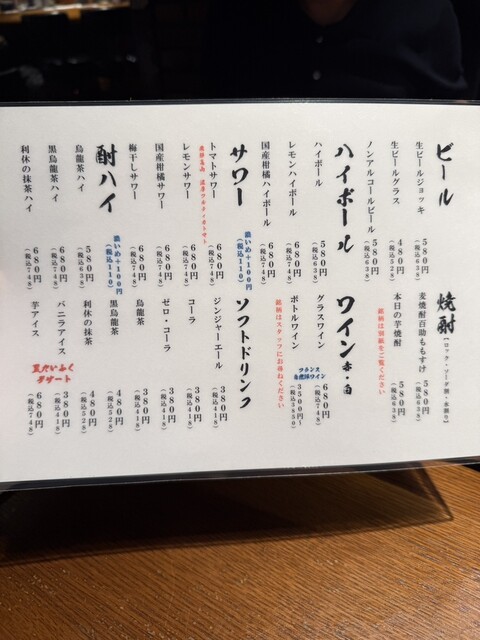 ビール
生ビールジョッキ 580円(税込638)
生ビールグラス 480円(税込528)
ノンアルコールビール 580円(税込638)
ハイボール
ハイボール 580円(税込638)
レモンハイボール 680円(税込748)
国産柑橘ハイボール 680円(税込748)
サワー
濃いめ+100円(税込110)
トマトサワー 680円(税込748)
レモンサワー 680円(税込748)
国産柑橘サワー 680円(税込748)
梅干しサワー 680円(税込748)
酎ハイ
濃いめ+100円(税込110)
烏龍茶ハイ 580円(税込638)
黒烏龍茶ハイ 680円(税込748)
利休の抹茶ハイ 680円(税込748)
焼酎【ロック・ソーダ割・水割り】
麦焼酎百助ももすけ 580円(税込638)
本日の芋焼酎 580円(税込638)
銘柄は別紙をご覧ください
ワイン 赤・白
グラスワイン 680円(税込748)
フランス
ボトルワイン 3500円〜(税込3850)
銘柄はスタッフにお尋ねください
ソフトドリンク
ジンジャーエール 380円(税込418)
コーラ 380円(税込418)
ゼロ・コーラ 380円(税込418)
烏龍茶 380円(税込418)
黒烏龍茶 480円(税込528)
利休の抹茶 480円(税込528)
豆たいふく
デザート
バニラアイス 380円(税込418)
芋アイス 670円(税込748)